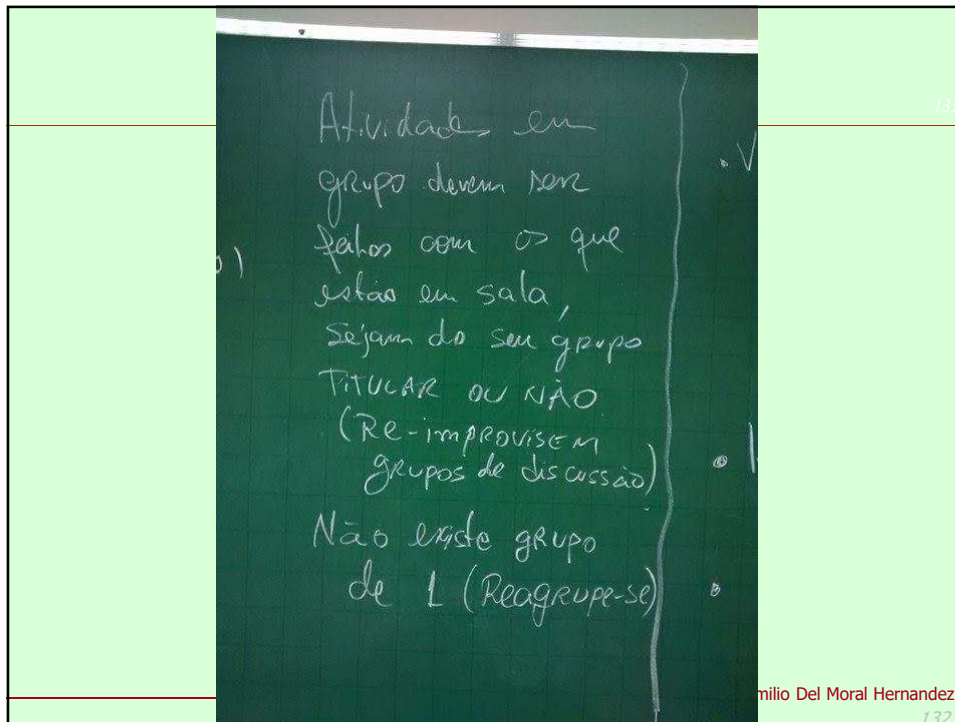 Atividades em
grupo devem ser
feitos com os que
estão em sala,
sejam do seu grupo
TITULAR OU NÃO
(Re-improvisem
grupos de discussão)
Não existe grupo
de 1 (Reagrupe-se)
milio Del Moral Hernandez
132